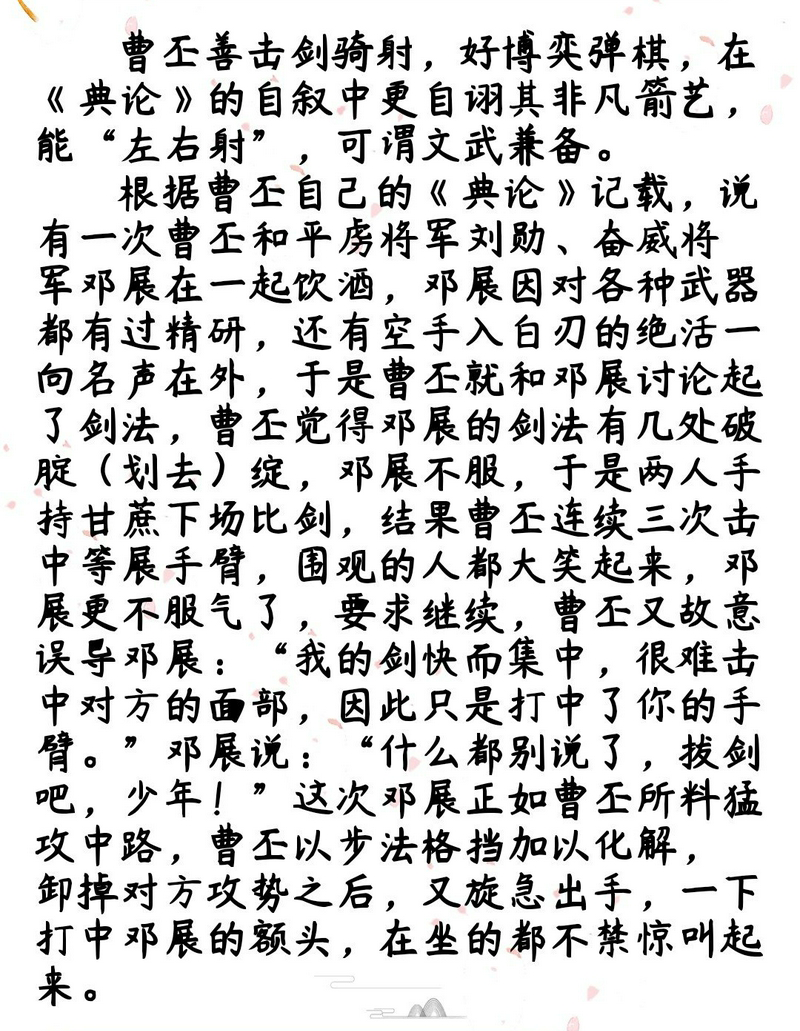 曹丕善击剑骑射，好博奕弹棋，在
《典论》的自叙中更自诩其非凡箭艺，
能“左右射”，可谓文武兼备。
根据曹丕自己的《典论》记载，说
有一次曹丕和平虏将军刘勋、奋威将
军邓展在一起饮酒，邓展因对各种武器
都有过精研，还有空手入白刃的绝活一
向名声在外，于是曹丕就和邓展讨论起
了剑法，曹丕觉得邓展的剑法有几处破
腚（划去）绽，邓展不服，于是两人手
持甘蔗下场比剑，结果曹丕连续三次击
中等展手臂，围观的人都大笑起来，邓
展更不服气了，要求继续，曹丕又故意
误导邓展：“我的剑快而集中，很难击
中对方的面部，因此只是打中了你的手
臂。”邓展说：“什么都别说了，拔剑
吧，少年！”这次邓展正如曹丕所料猛
攻中路，曹丕以步法格挡加以化解，
卸掉对方攻势之后，又旋急出手，一下
打中邓展的额头，在坐的都不禁惊叫起
来。